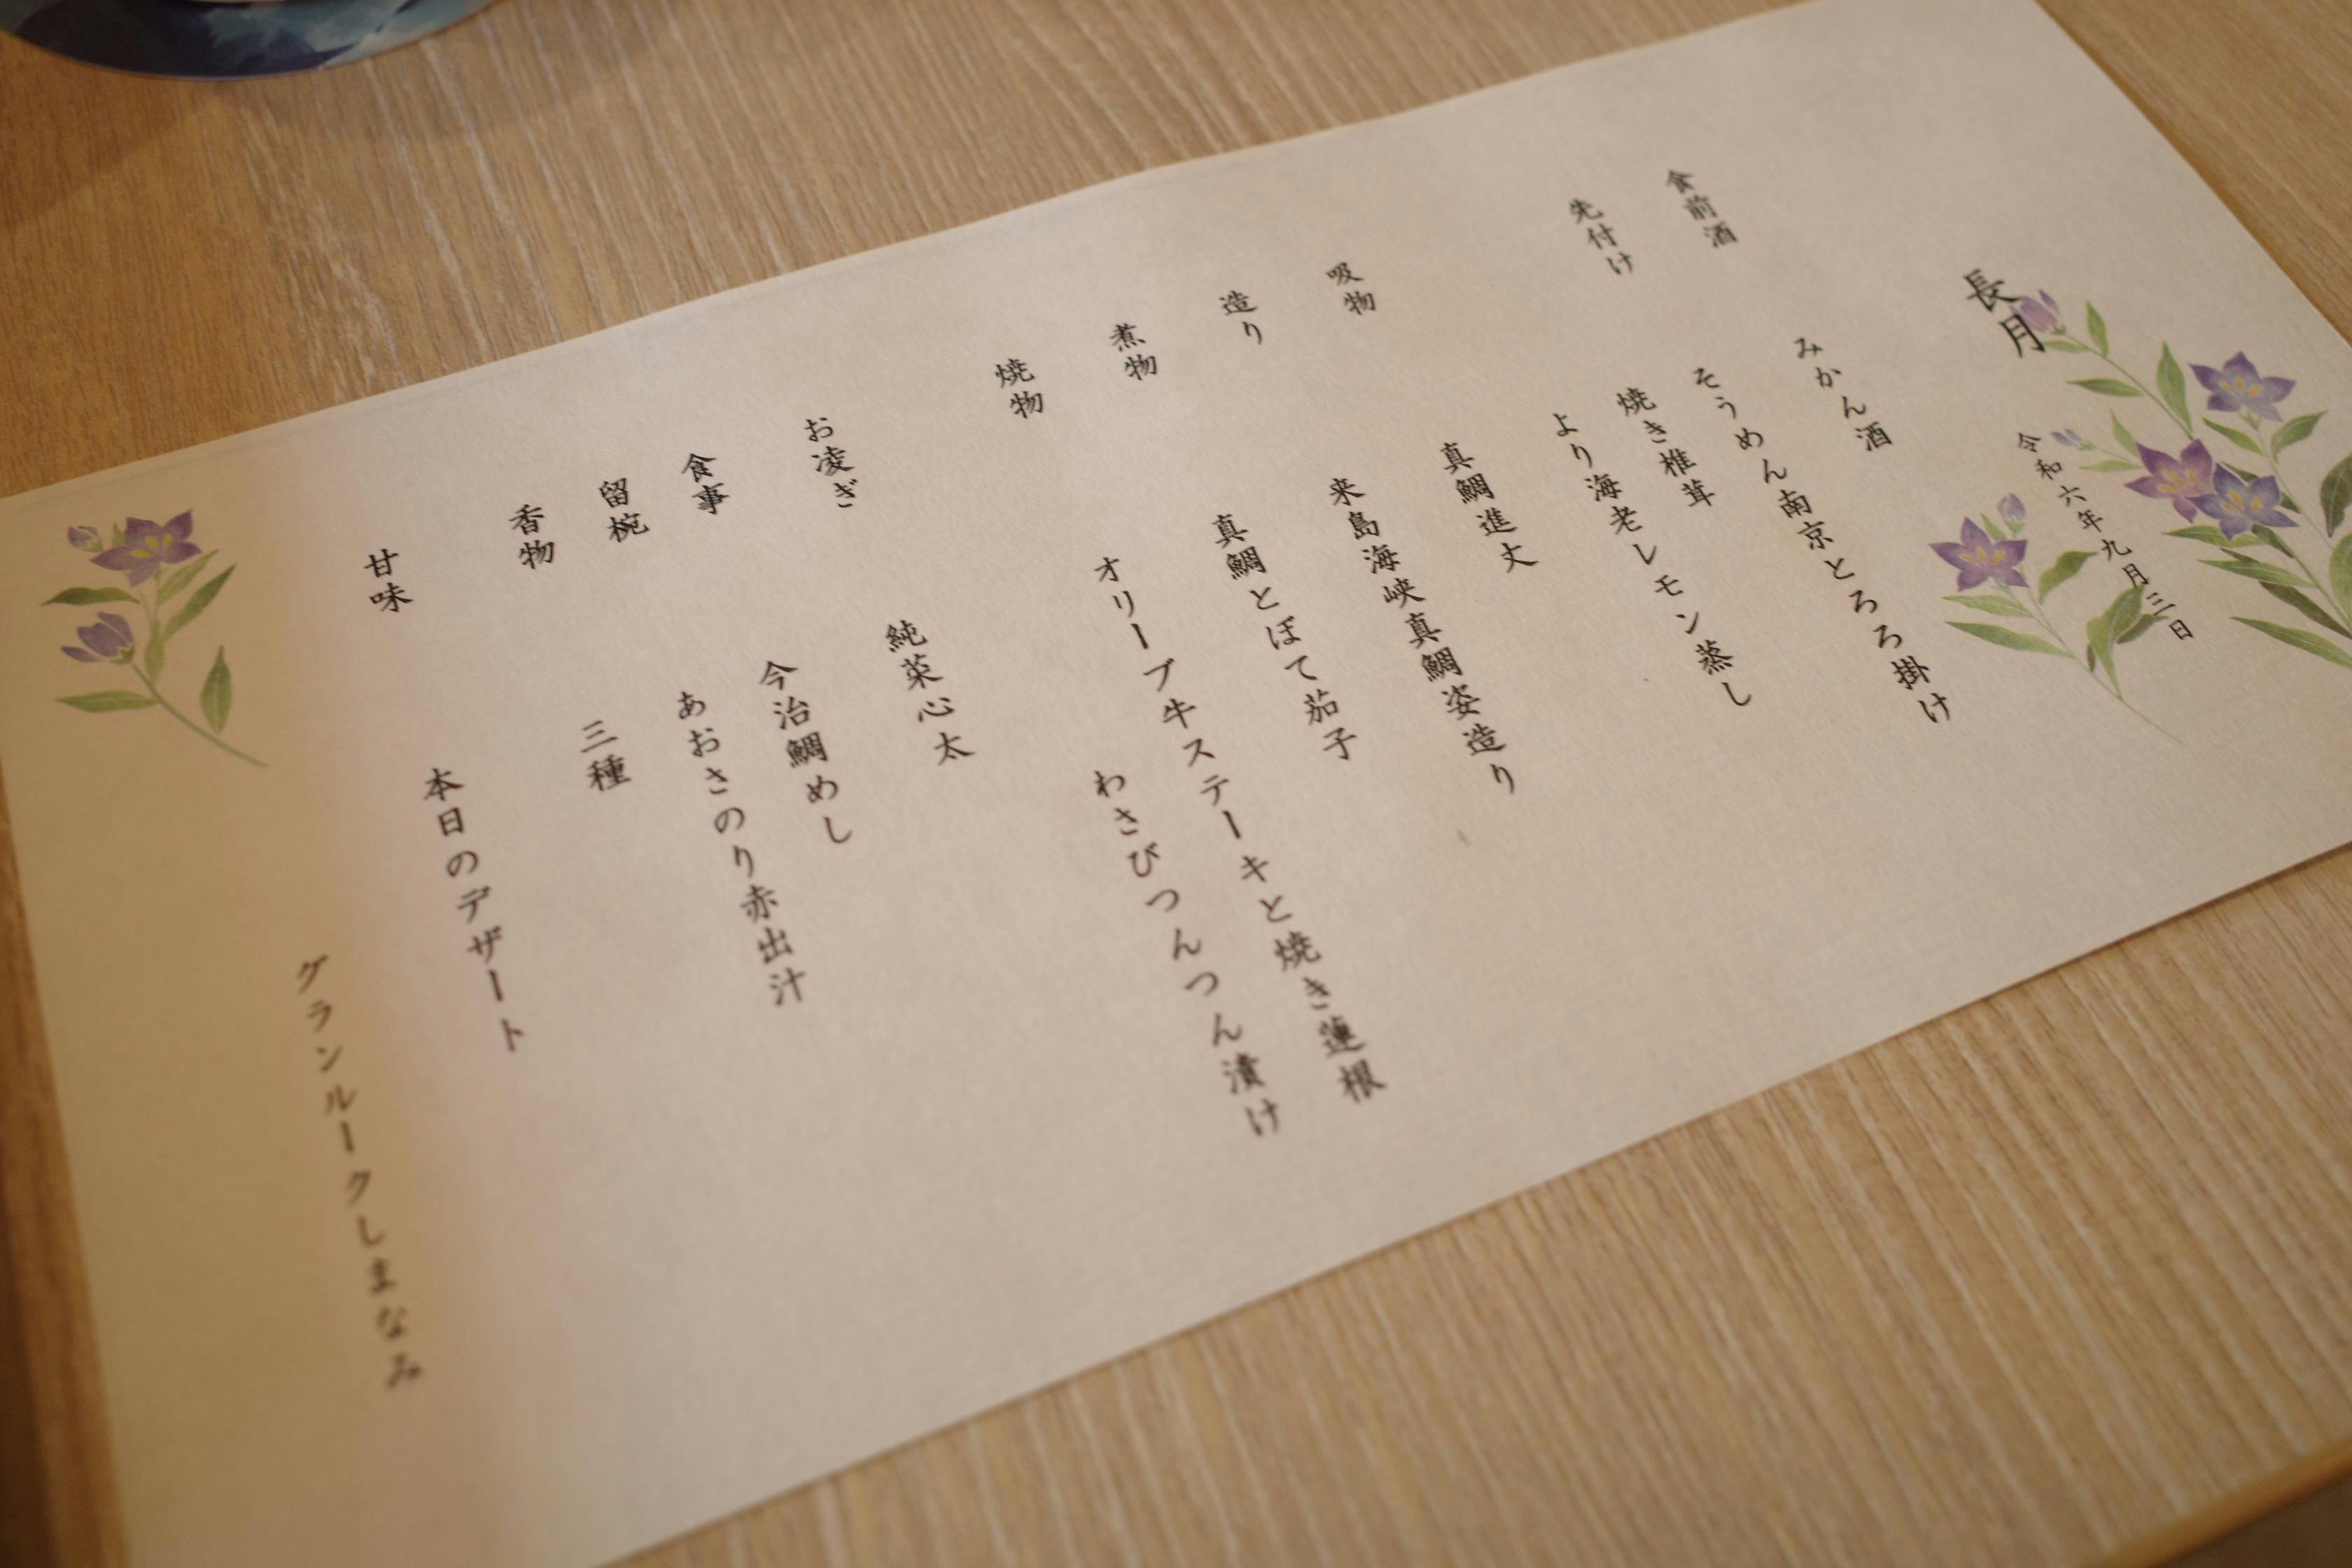 長月
令和六年九月三日
食前酒
みかん酒
先付け
そうめん南京とろろ掛け
焼き椎茸
より海老レモン蒸し
吸物
真鯛進丈
造り
来島海峡真鯛姿造り
煮物
真鯛とぼて茄子
焼物
オリーブ牛ステーキと焼き蓮根
わさびつんつん漬け
お凌ぎ
純菜心太
食事
今治鯛めし
留椀
あおさのり赤出汁
香物
三種
甘味
本日のデザート
グランルークしまなみ